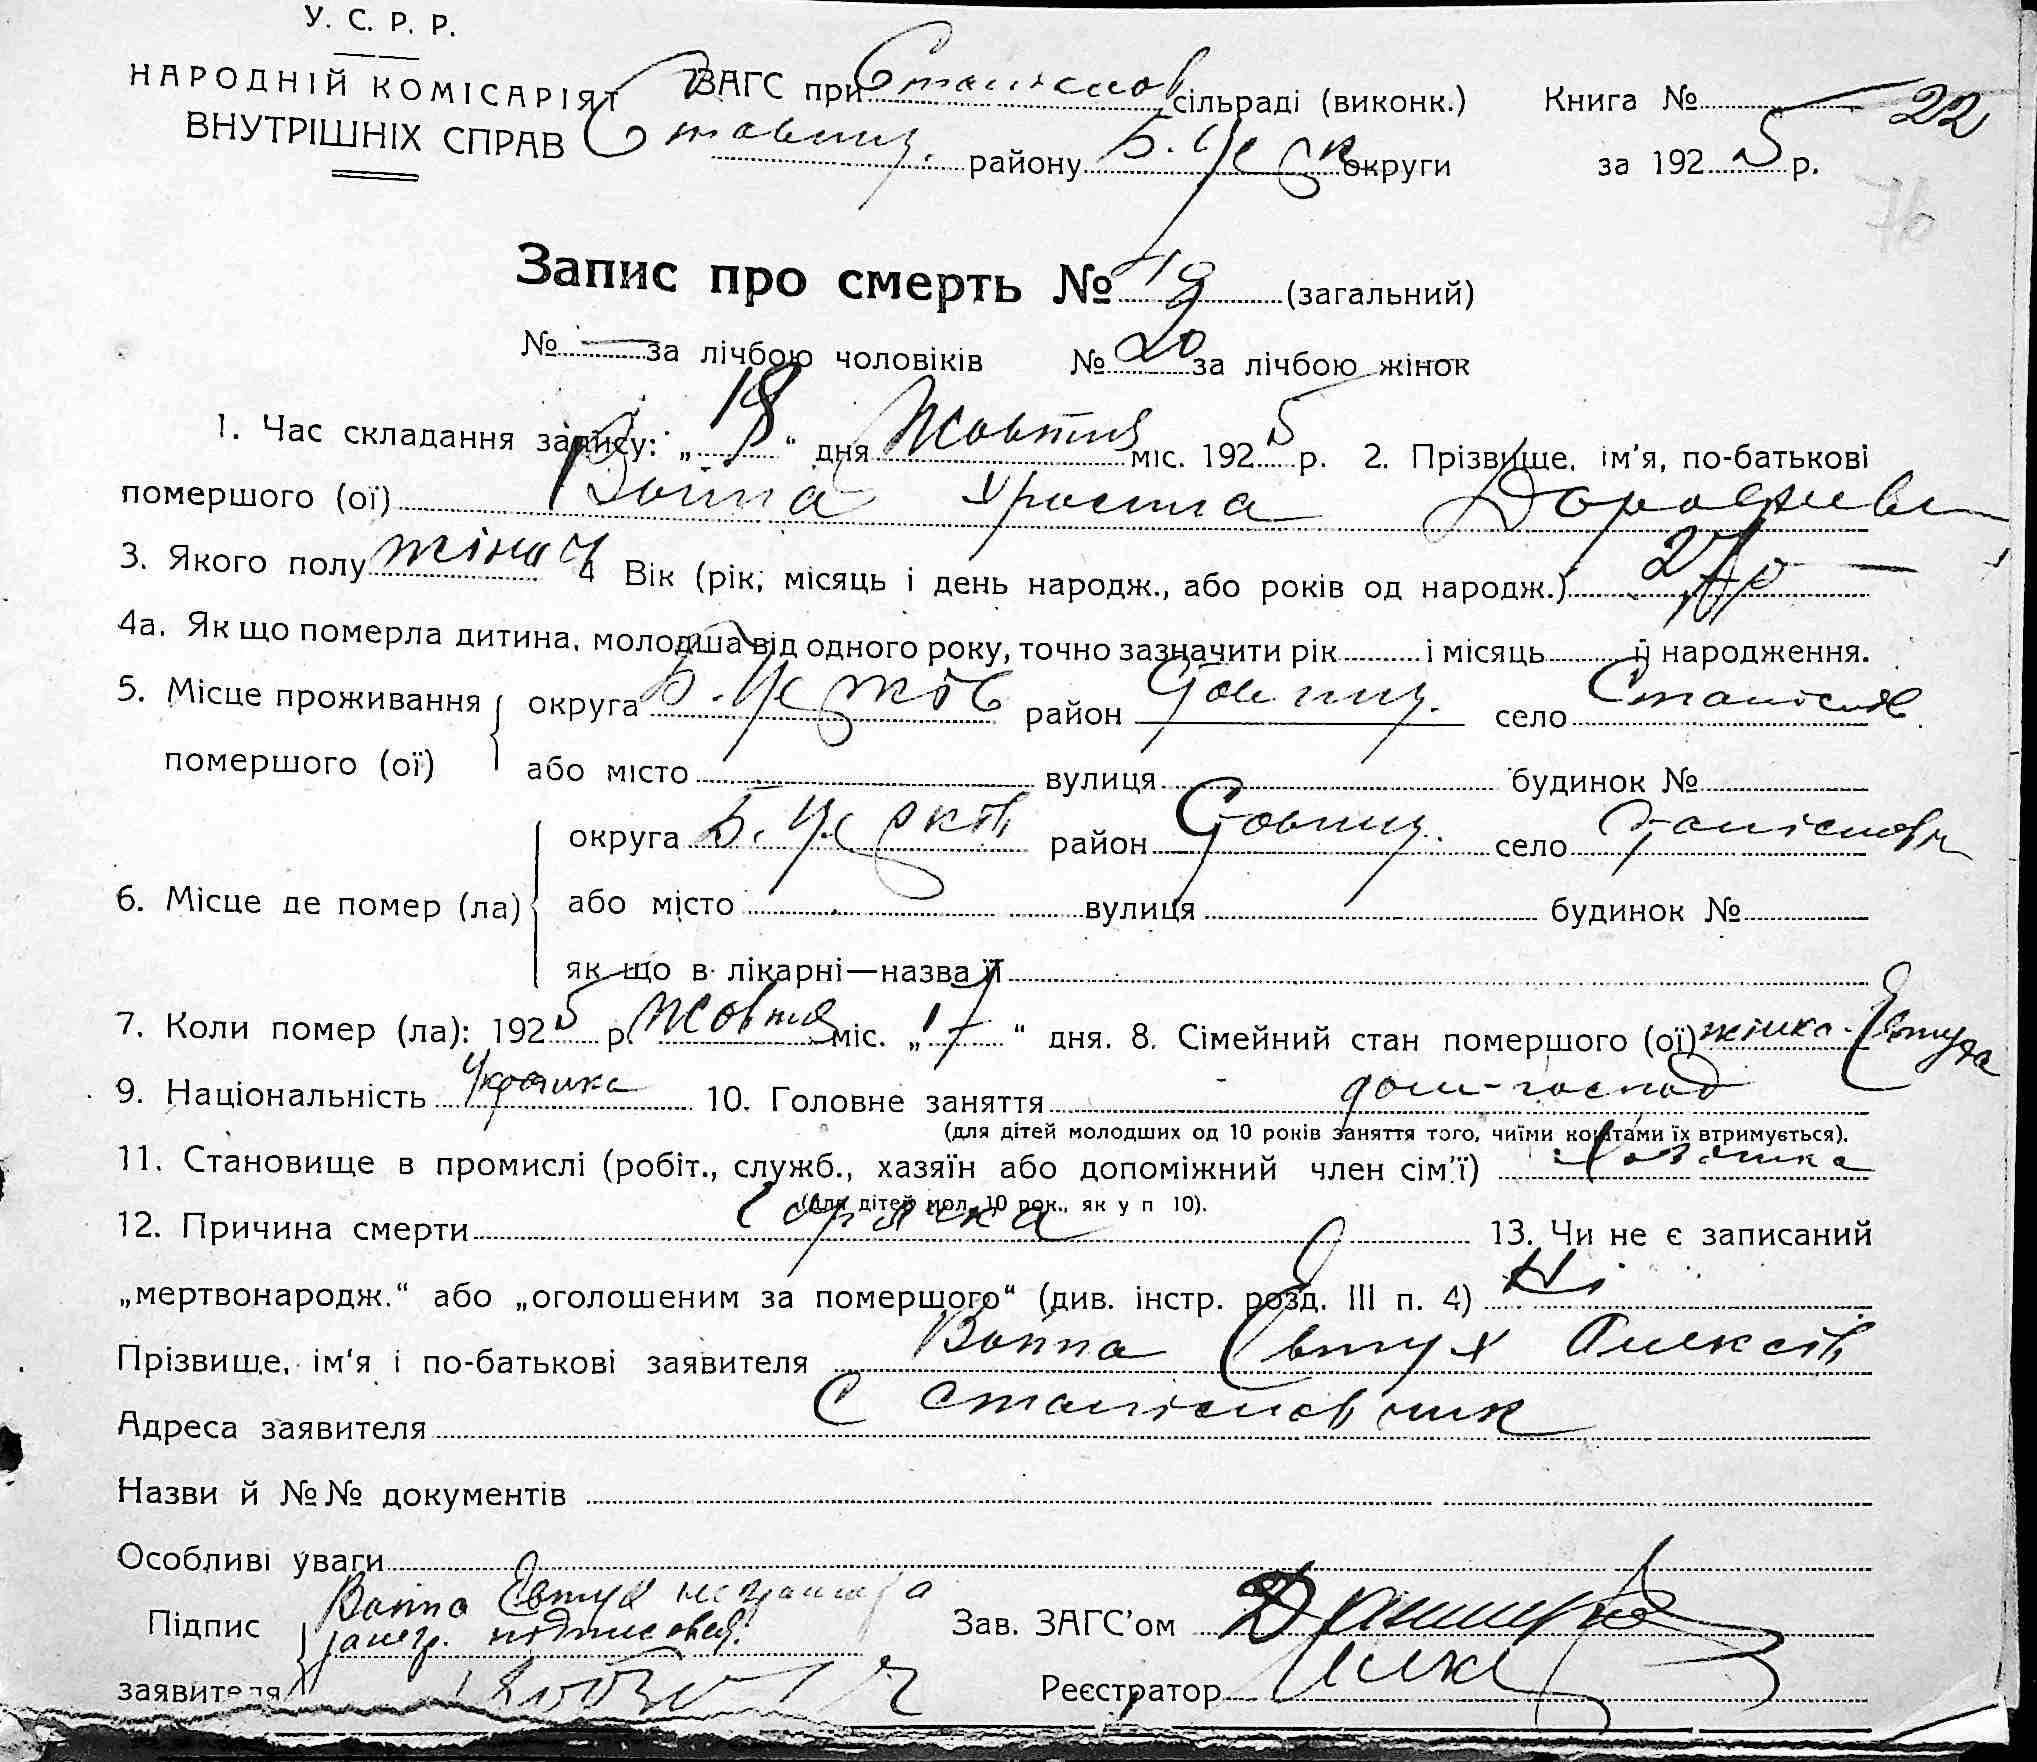 У. С. Р. Р.
НАРОДНІЙ КОМІСАРІЯТ
ВНУТРІШНІХ СПРАВ
ЗАГС при Станіслов сільраді (виконк.) Книга № 22
Ставищ. району Б. Церк округи за 1925 р.
76
Запис про смерть № 19 (загальний)
№ — за лічбою чоловіків № 20 за лічбою жінок
1. Час складання запису: „18“ дня Жовтня міс. 1925 р. 2. Прізвище, ім'я, по-батькові
помершого (ої) Войпа Хростла
3. Якого полу жіноч 4 Вік (рік, місяць і день народж., або років од народж.) 27
4а. Як що померла дитина, молодша від одного року, точно зазначити рік і місяць її народження.
5. Місце проживання округа Б. Церков район Ставищ. село Станіслов
помершого (ої) або місто вулиця будинок №
округа Б. Церков район Ставищ. село
6. Місце де помер (ла) або місто вулиця будинок №
як що в лікарні—назва її
7. Коли помер (ла): 1925 р. Жовтня міс. „17“ дня. 8. Сімейний стан помершого (ої) жінка Євтуха
9. Національність Українка 10. Головне заняття дом-господ
(для дітей молодших од 10 років заняття того, чиїми коштами їх втримується).
11. Становище в промислі (робіт., служб., хазяїн або допоміжний член сім'ї) хозяйка
(для дітей мол. 10 рок., як у п 10).
12. Причина смерти Горячка 13. Чи не є записаний
„мертвонародж.“ або „оголошеним за помершого“ (див. інстр. розд. III п. 4) Ні
Прізвище, ім'я і по-батькові заявителя Войпа Євтух Олексів
Адреса заявителя С Станіславчик
Назви й №№ документів
Особливі уваги
Підпис Войпа Євтух Зав. ЗАГС'ом
заявителя Реєстратор